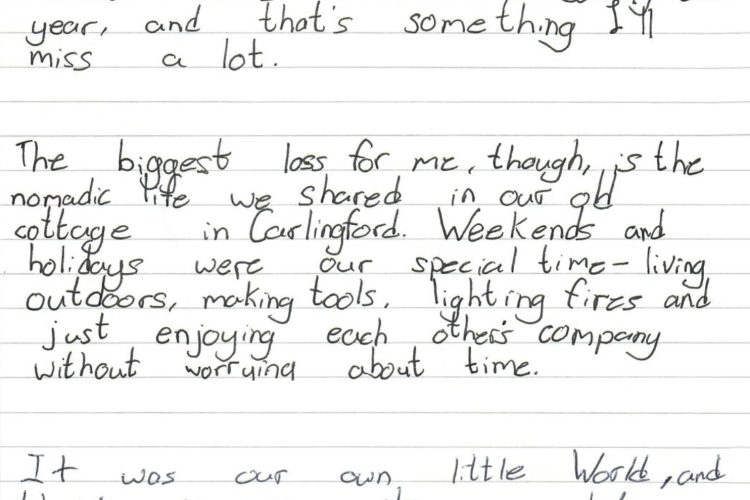 year, and that's something I'll
miss a lot.
The biggest loss for me, though, is the
nomadic life we shared in our old
cottage in Carlingford. Weekends and
holidays were our special time - living
outdoors, making tools, lighting fires and
just enjoying each other's company
without worrying about time.
It was our own little World, and